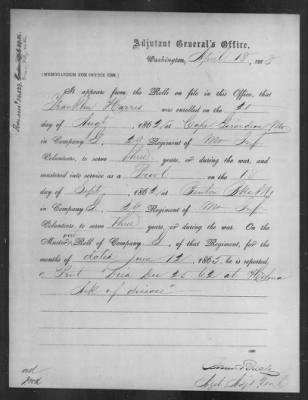 Adjutant General's Office,
Washington, April 18, 188
[MEMORANDUM FOR OFFICE USE]
It appears from the Rolls on file in this Office, that
Franklin Harris was enrolled on the 21
day of Augt, 1862, at Cape Girardeau Mo
in Company G, 29 Regiment of Mo Inf
Volunteers, to serve three years, or during the war, and
mustered into service as a Privt on the 18
day of Sept, 1862, at Benton Bks Mo,
in Company G, 29 Regiment of Mo Inf
Volunteers, to serve three years, or during the war. On the
Muster Roll of Company G, of that Regiment, for the
months of dated June 12, 1865, he is reported,
a Privt "Died Dec 26 62 at Helena
Ark of disease"
Asst Adjt Genl